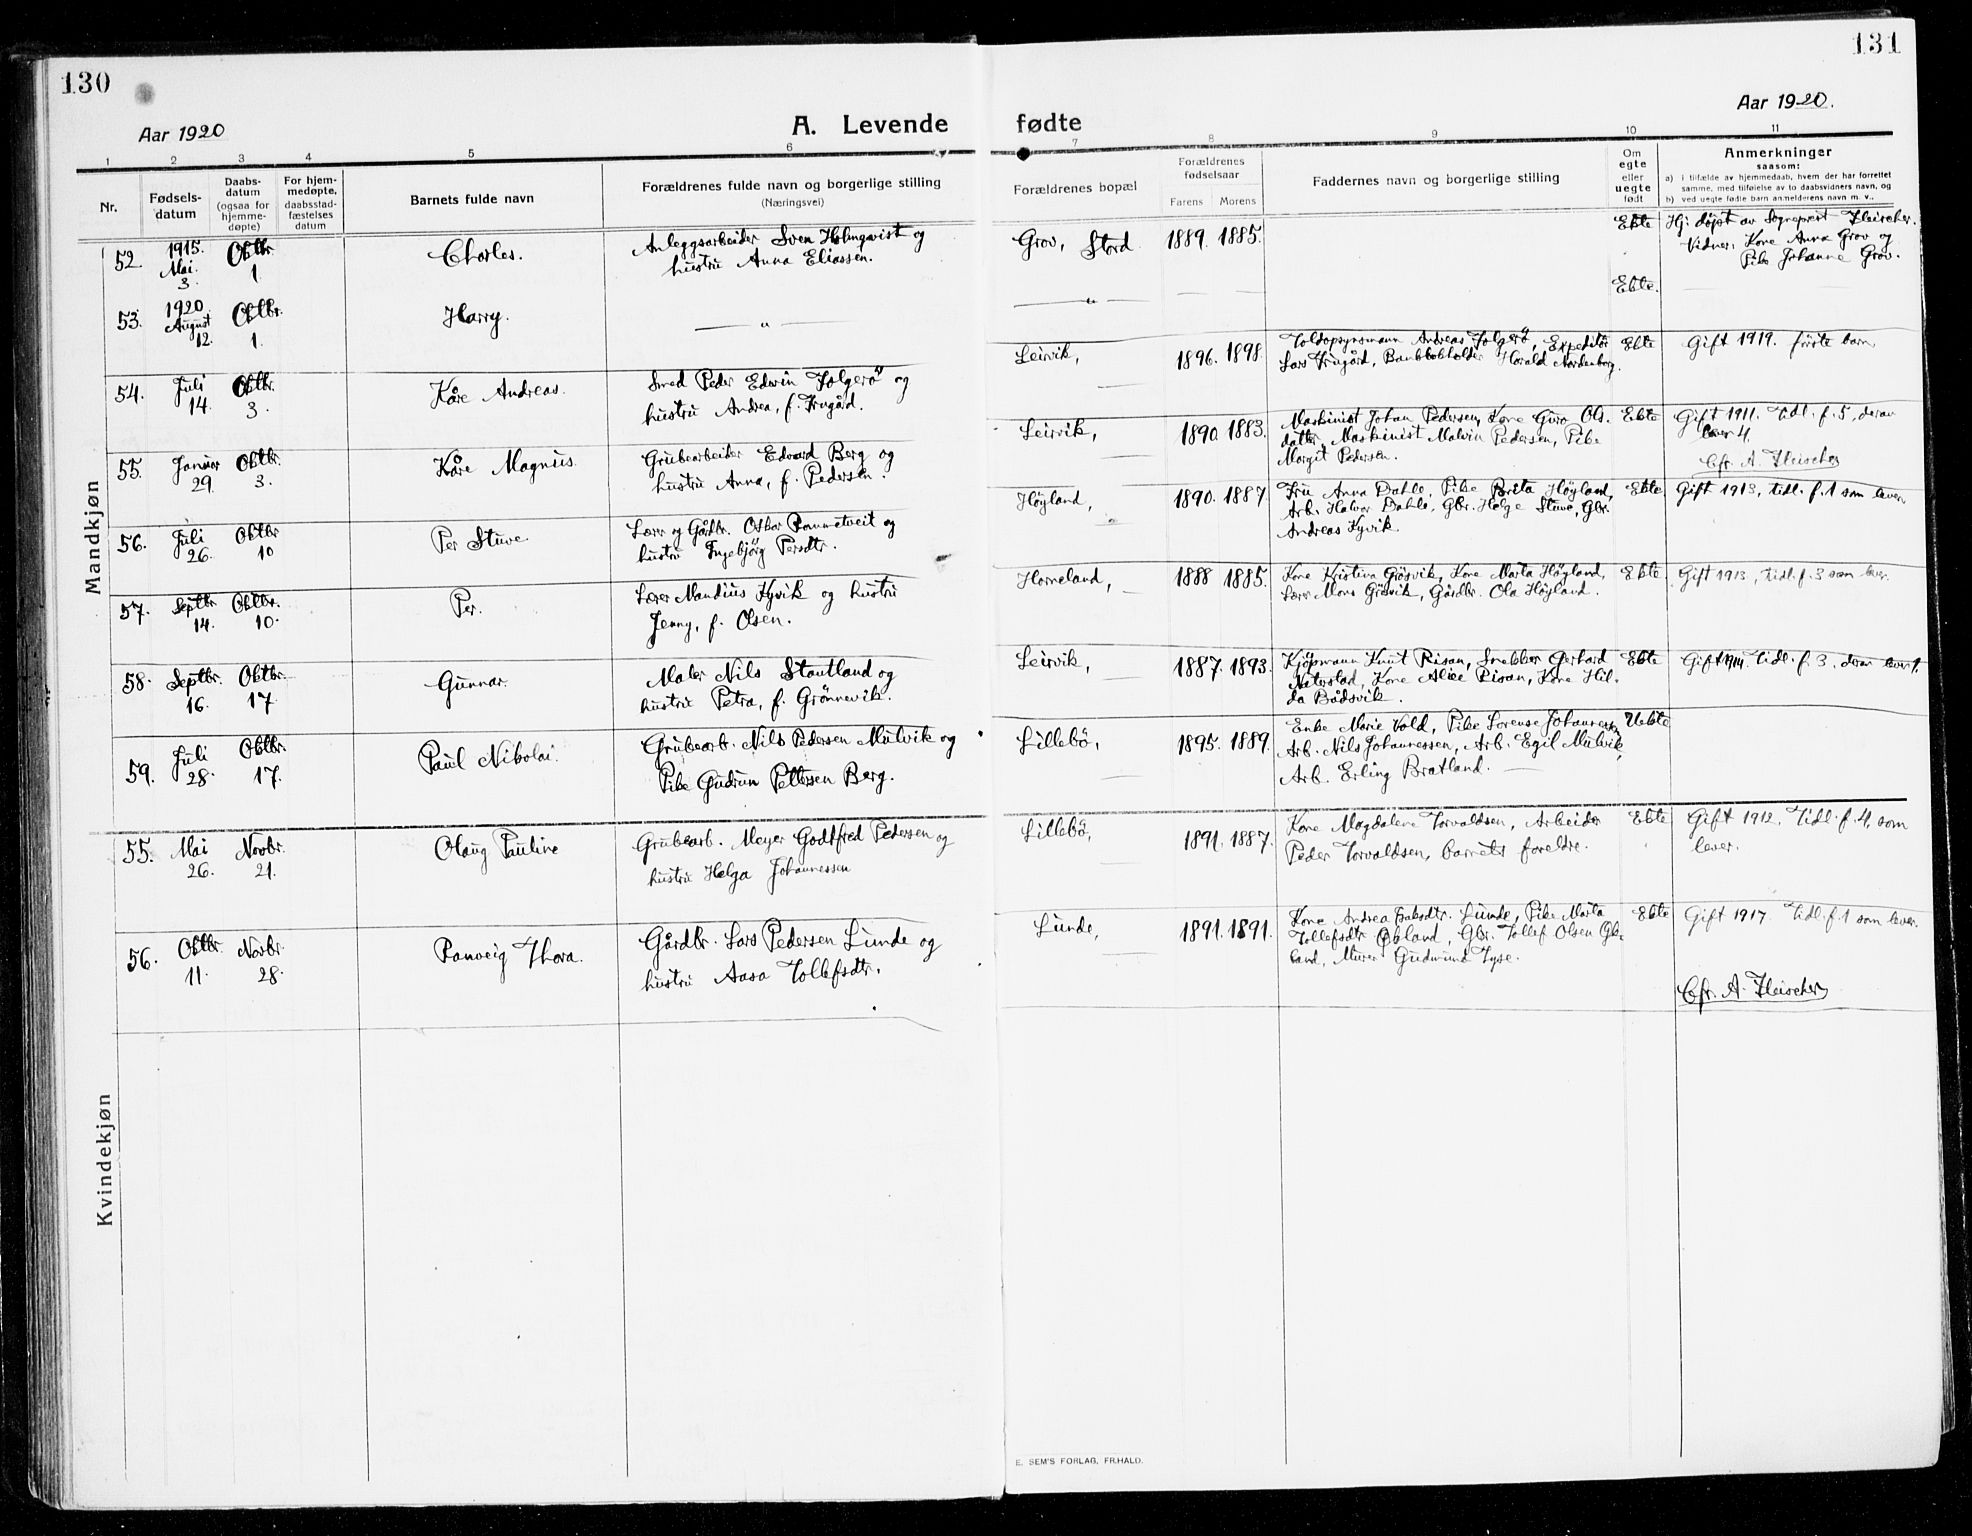 130
131
Aar 1920
Aar 1920.
A. Levende fødte
1 2 3 4 5 6 7 8 9 10 11
Nr.
Fødsels-
datum
Daabs-
datum
(ogsaa for
hjemme-
døpte)
For hjem-
medøpte,
daabsstad-
fæstelses
datum
Barnets fulde navn
Forældrenes fulde navn og borgerlige stilling
(Næringsvei)
Forældrenes bopæl
Forældrenes
fødselsaar
Farens Morens
Faddernes navn og borgerlige stilling
Om
egte
eller
uegte
født
Anmerkninger
saasom:
a) i tilfælde av hjemmedaab, hvem der har forrettet
samme, med tilføielse av to daabsvidners navn, og
b) ved uegte fødte barn anmelderens navn m. v..
Mandkjøn
52. 1915. Mai. 3. Oktbr. 1.
Charles.
Anleggsarbeider Sven Holmqvist og
hustru Anna Eliassen.
Grov, Stord 1889. 1885.
Ekte
Hj. døpt av Sogneprest Fleischer.
Vidner: Kone Anna Grov og
Pike Johanne Grov.
53. 1920 August 12. Oktbr. 1.
Harry.
— " —
— " —
Ekte.
54. Juli 14. Oktbr. 3.
Kåre Andreas.
Smed Peder Edwin Tolgerö og
hustru Andrea, f. Frugård.
Leirvik, 1896. 1898.
Toldopsynsmann Andreas Tolgerö, Expeditör
Lars Frugård, Bankbokholder Harald Nordenborg.
Ekte
Gift 1919. förste barn.
55. Januar 29. Oktbr. 3.
Kåre Magnus.
Grubearbeider Edvard Berg og
hustru Anna, f. Pedersen.
Leirvik, 1890. 1883.
Maskinist Johan Pedersen, Kone Guro Ols-
datter, Maskinist Malvin Pedersen, Pike
Margit Pedersen.
Ekte
Gift 1911. Tidl. f. 5, derav
lever 4.
Cfr. A. Fleischer
56. Juli 26. Oktbr 10
Per Stuve
Lærer og Gårdbr. Oskar Rommetveit og
hustru Ingebjörg Persdtr.
Höyland, 1890. 1887
Fru Anna Dahle, Pike Brita Höyland,
Arb. Halvor Dahle, Gbr. Helge Stuve, Gbr.
Andreas Kyvik
Ekte
Gift 1913, tidl. f. 1 som lever.
57. Septbr. 14. Oktbr. 10.
Per.
Lærer Mandius Kyvik og hustru
Jenny, f. Olsen.
Horneland, 1888 1885.
Kone Kristina Grösvik, Kone Marta Höyland,
Lærer Mons Grösvik, Gårdbr. Ola Höyland.
Ekte
Gift 1913, tidl. f. 3 som lever.
58. Septbr. 16. Oktbr. 17.
Gunnar.
Maler Nils Stautland og
hustru Petra, f. Grönnevik.
Leirvik, 1887. 1893.
Kjöpmann Knut Risan, Snekker Gerhard
Naterstad, Kone Alice Risan, Kone Hil-
da Bådsvik.
Ekte
Gift 1914. Tidl. f. 3. derav lever 1.
59. Juli 28. Oktbr. 17.
Paul Nikolai.
Grubearb. Nils Pedersen Mulvik og
Pike Gudrun Pettersen Berg.
Lillebö, 1895. 1889.
Enke Marie Vold, Pike Lorense Johannessen,
Arb. Nils Johannessen, Arb. Egil Mulvik,
Arb. Erling Bratland.
Uekte
Kvindekjøn
55. Mai 26. Novbr. 21.
Olaug Pauline
Grubearb. Meyer Godtfred Pedersen og
hustru Helga Johannessen
Lillebö, 1891. 1887.
Kone Magdalene Torvaldsen, Arbeider
Peder Torvaldsen, barnets foreldre.
Ekte
Gift 1912. Tidl. f. 4, som
lever.
56. Oktbr. 11. Novbr. 28.
Ranveig Thora.
Gårdbr. Lars Pedersen Lunde og
hustru Aasa Tollefsdtr.
Lunde, 1891. 1891.
Kone Andrea Isaksdtr. Lunde, Pike Marta
Tollefsdtr , Gbr. Tollef Olsen
land, Murer Gudmund Tyse.
Ekte
Gift 1917. tidl. f. 1 som lever.
Cfr. A. Fleischer
E. SEM'S FORLAG, FR.HALD.